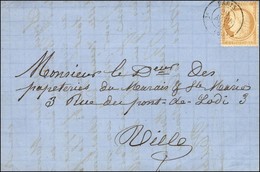 PARIS
Monsieur le Deur des
papeteries du Marais & Ste Marie
3 Rue du pont-de-Lodi 3
Ville